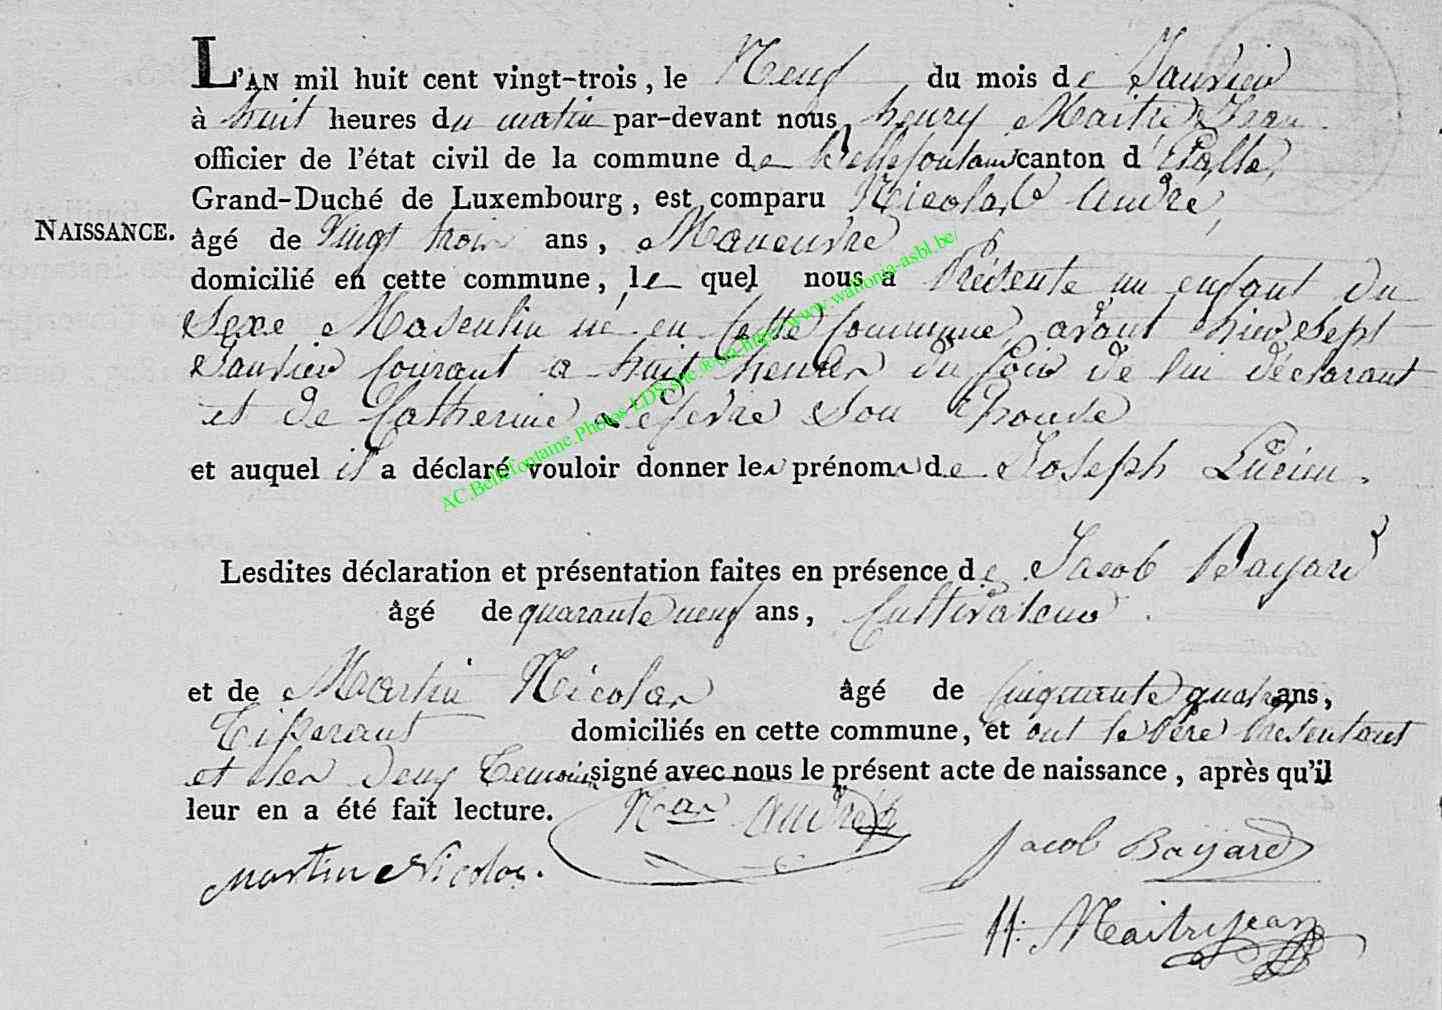 L'AN mil huit cent vingt-trois, le Neuf du mois de Janvier
à huit heures du matin par-devant nous, henry Maitre Jean
officier de l'état civil de la commune de Bellefontaine canton d'Etalle,
Grand-Duché de Luxembourg, est comparu Nicolas André,
NAISSANCE.
âgé de Vingt trois ans, Maneuvre
domicilié en cette commune, le quel nous a Présenté un enfant du
Sexe Masculin né en Cette Commune, avant hier Sept
Janvier Courant a huit heures du Soir de lui déclarant
et de Catherine Lefevre Son Epouse
et auquel il a déclaré vouloir donner les prénoms de Joseph Lucien.
Lesdites déclaration et présentation faites en présence de Jacob Bayard
âgé de quarante neuf ans, Cultivateur
et de Martin Nicolas âgé de Cinquante quatre ans,
Tisserant domiciliés en cette commune, et ont le Père Présentant
et les Deux Temoins signé avec nous le présent acte de naissance, après qu'il
leur en a été fait lecture.
Nas André
Martin Nicolas.
Jacob Bayard
H: Maitrejean
AC.Bellefontaine.Photos LDS mise en ligne http://www.wallonia-asbl.be/